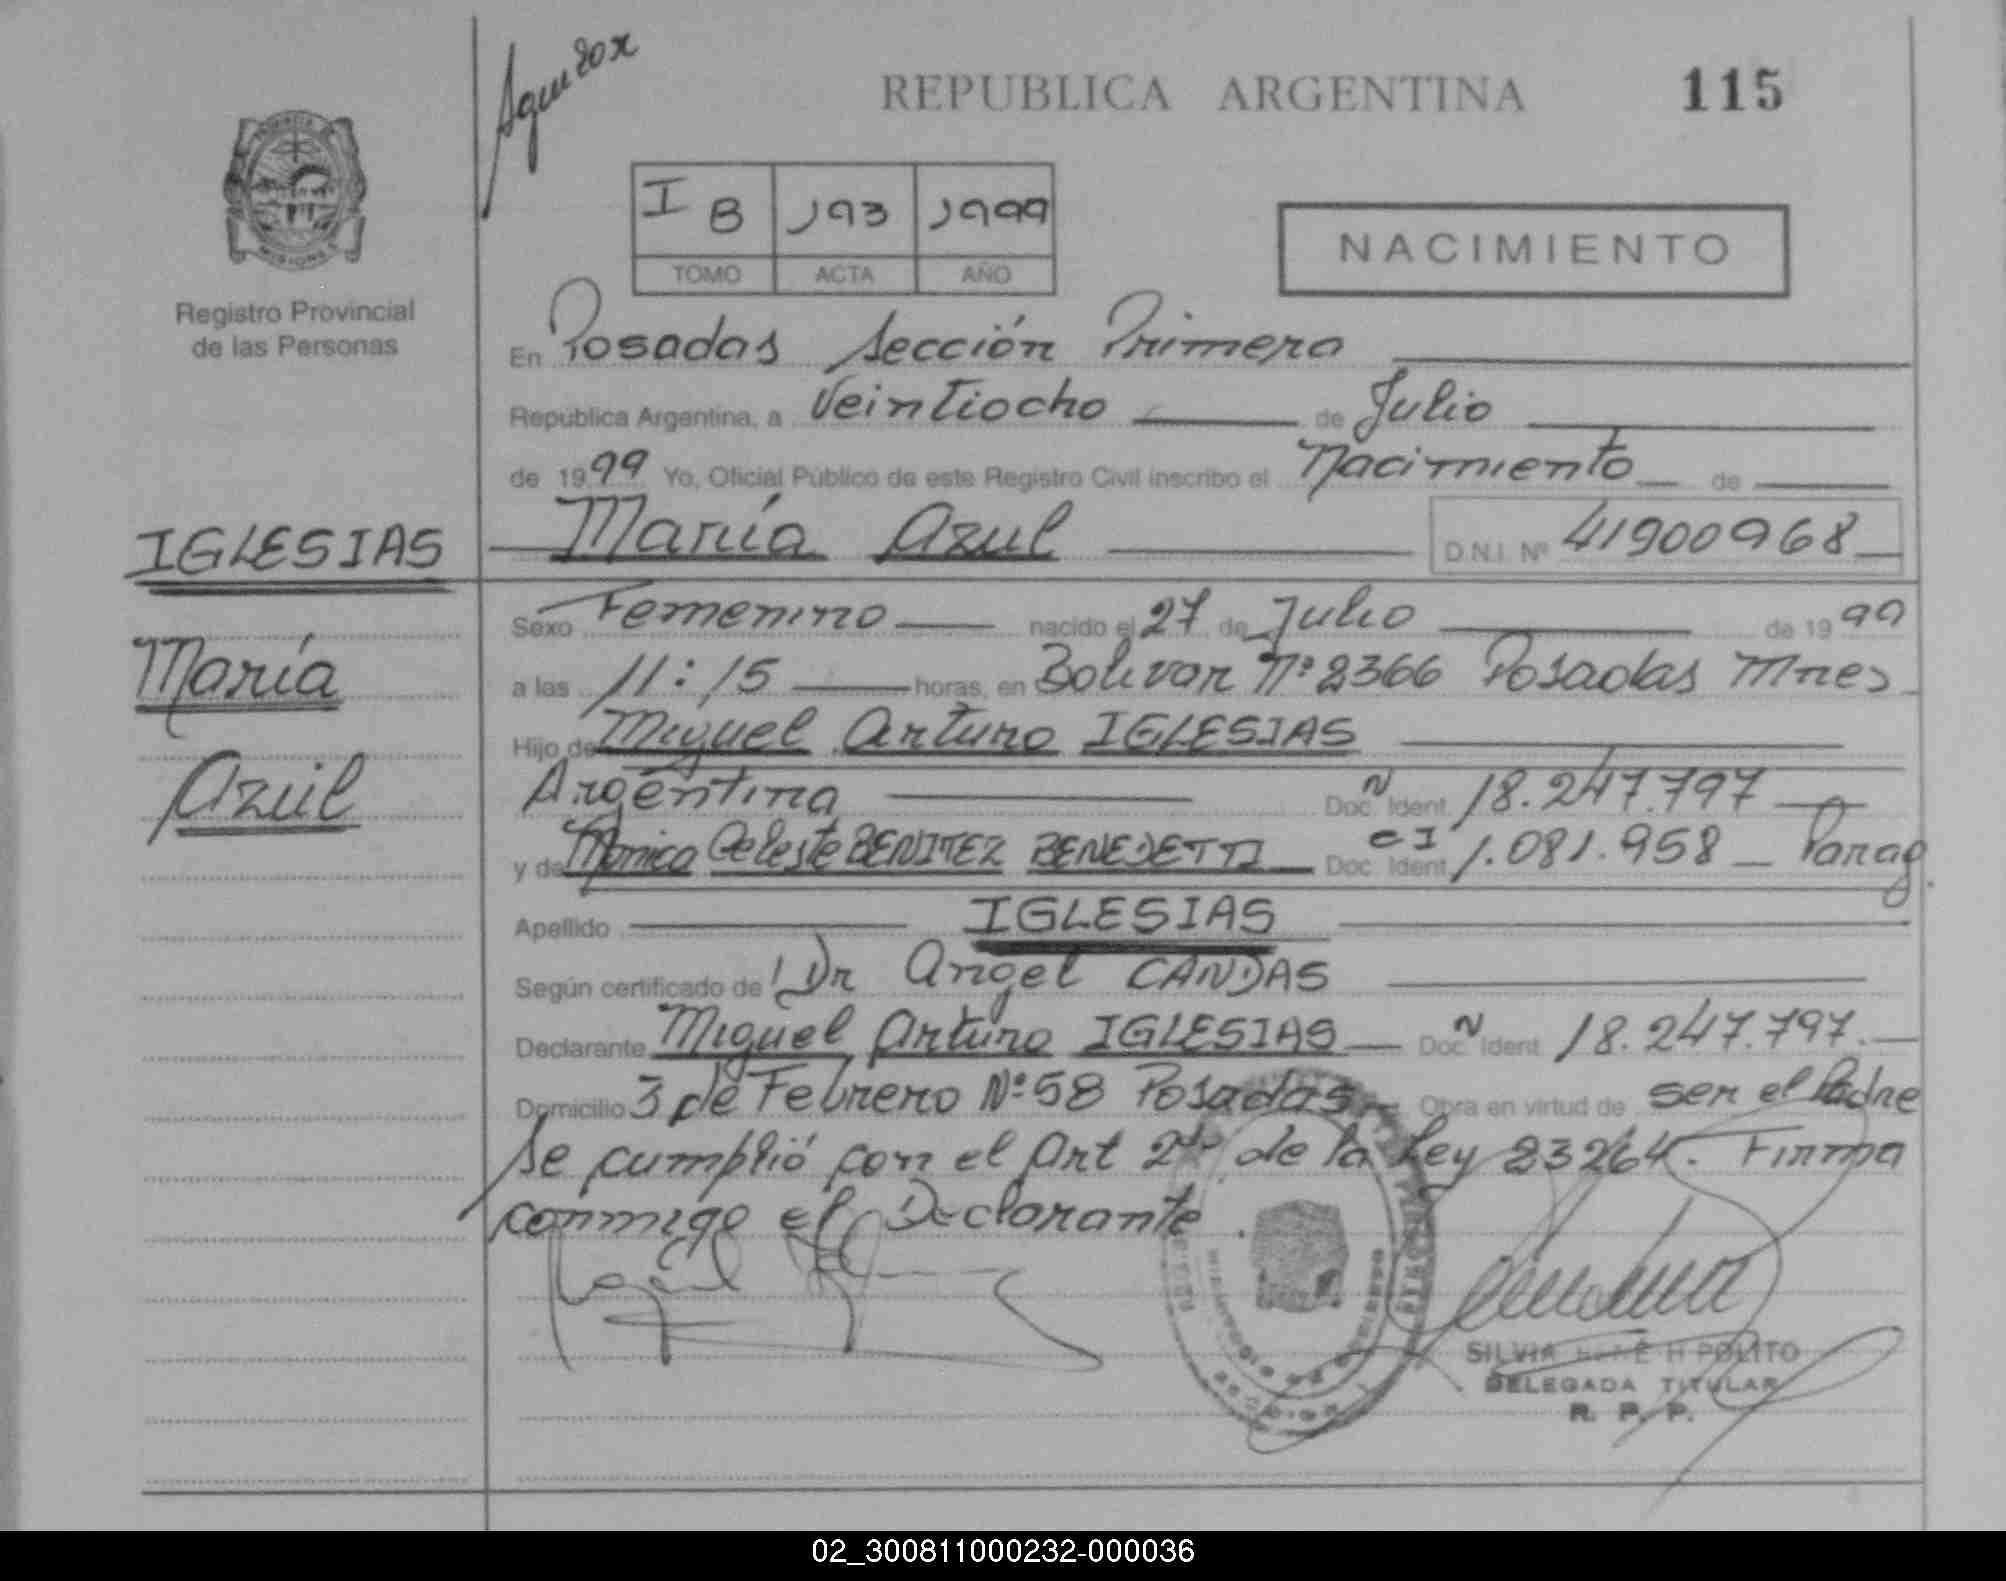 REPUBLICA ARGENTINA 115
PROVINCIA DE
MISIONES
Registro Provincial
de las Personas
I B 193 1999
TOMO ACTA AÑO
NACIMIENTO
En Posadas Sección Primera
República Argentina, a Veintiocho de Julio
de 1999 Yo, Oficial Público de este Registro Civil inscribo el Nacimiento de
IGLESIAS
María Azul D.N.I. Nº 41900968
María
Azul
Sexo Femenino nacido el 27 de Julio de 1999
a las 11:15 horas, en Bolivar Nº 2366 Posadas Mnes
Hijo de Miguel Arturo IGLESIAS
Argentina Doc. Ident. N 18.247.797
y de Monica Celeste BENITEZ BENEDETTI Doc. Ident. CI 1.081.958 Parag.
Apellido IGLESIAS
Según certificado de Dr Angel CANDAS
Declarante Miguel Arturo IGLESIAS Doc. Ident. N 18.247.797.
Domicilio 3 de Febrero Nº 58 Posadas Obra en virtud de ser el Padre
Se cumplió con el Art 2do de la Ley 23264. Firma
conmigo el Declarante.
SILVIA HIPOLITO
DELEGADA TITULAR
R. P. P.
02_300811000232-000036